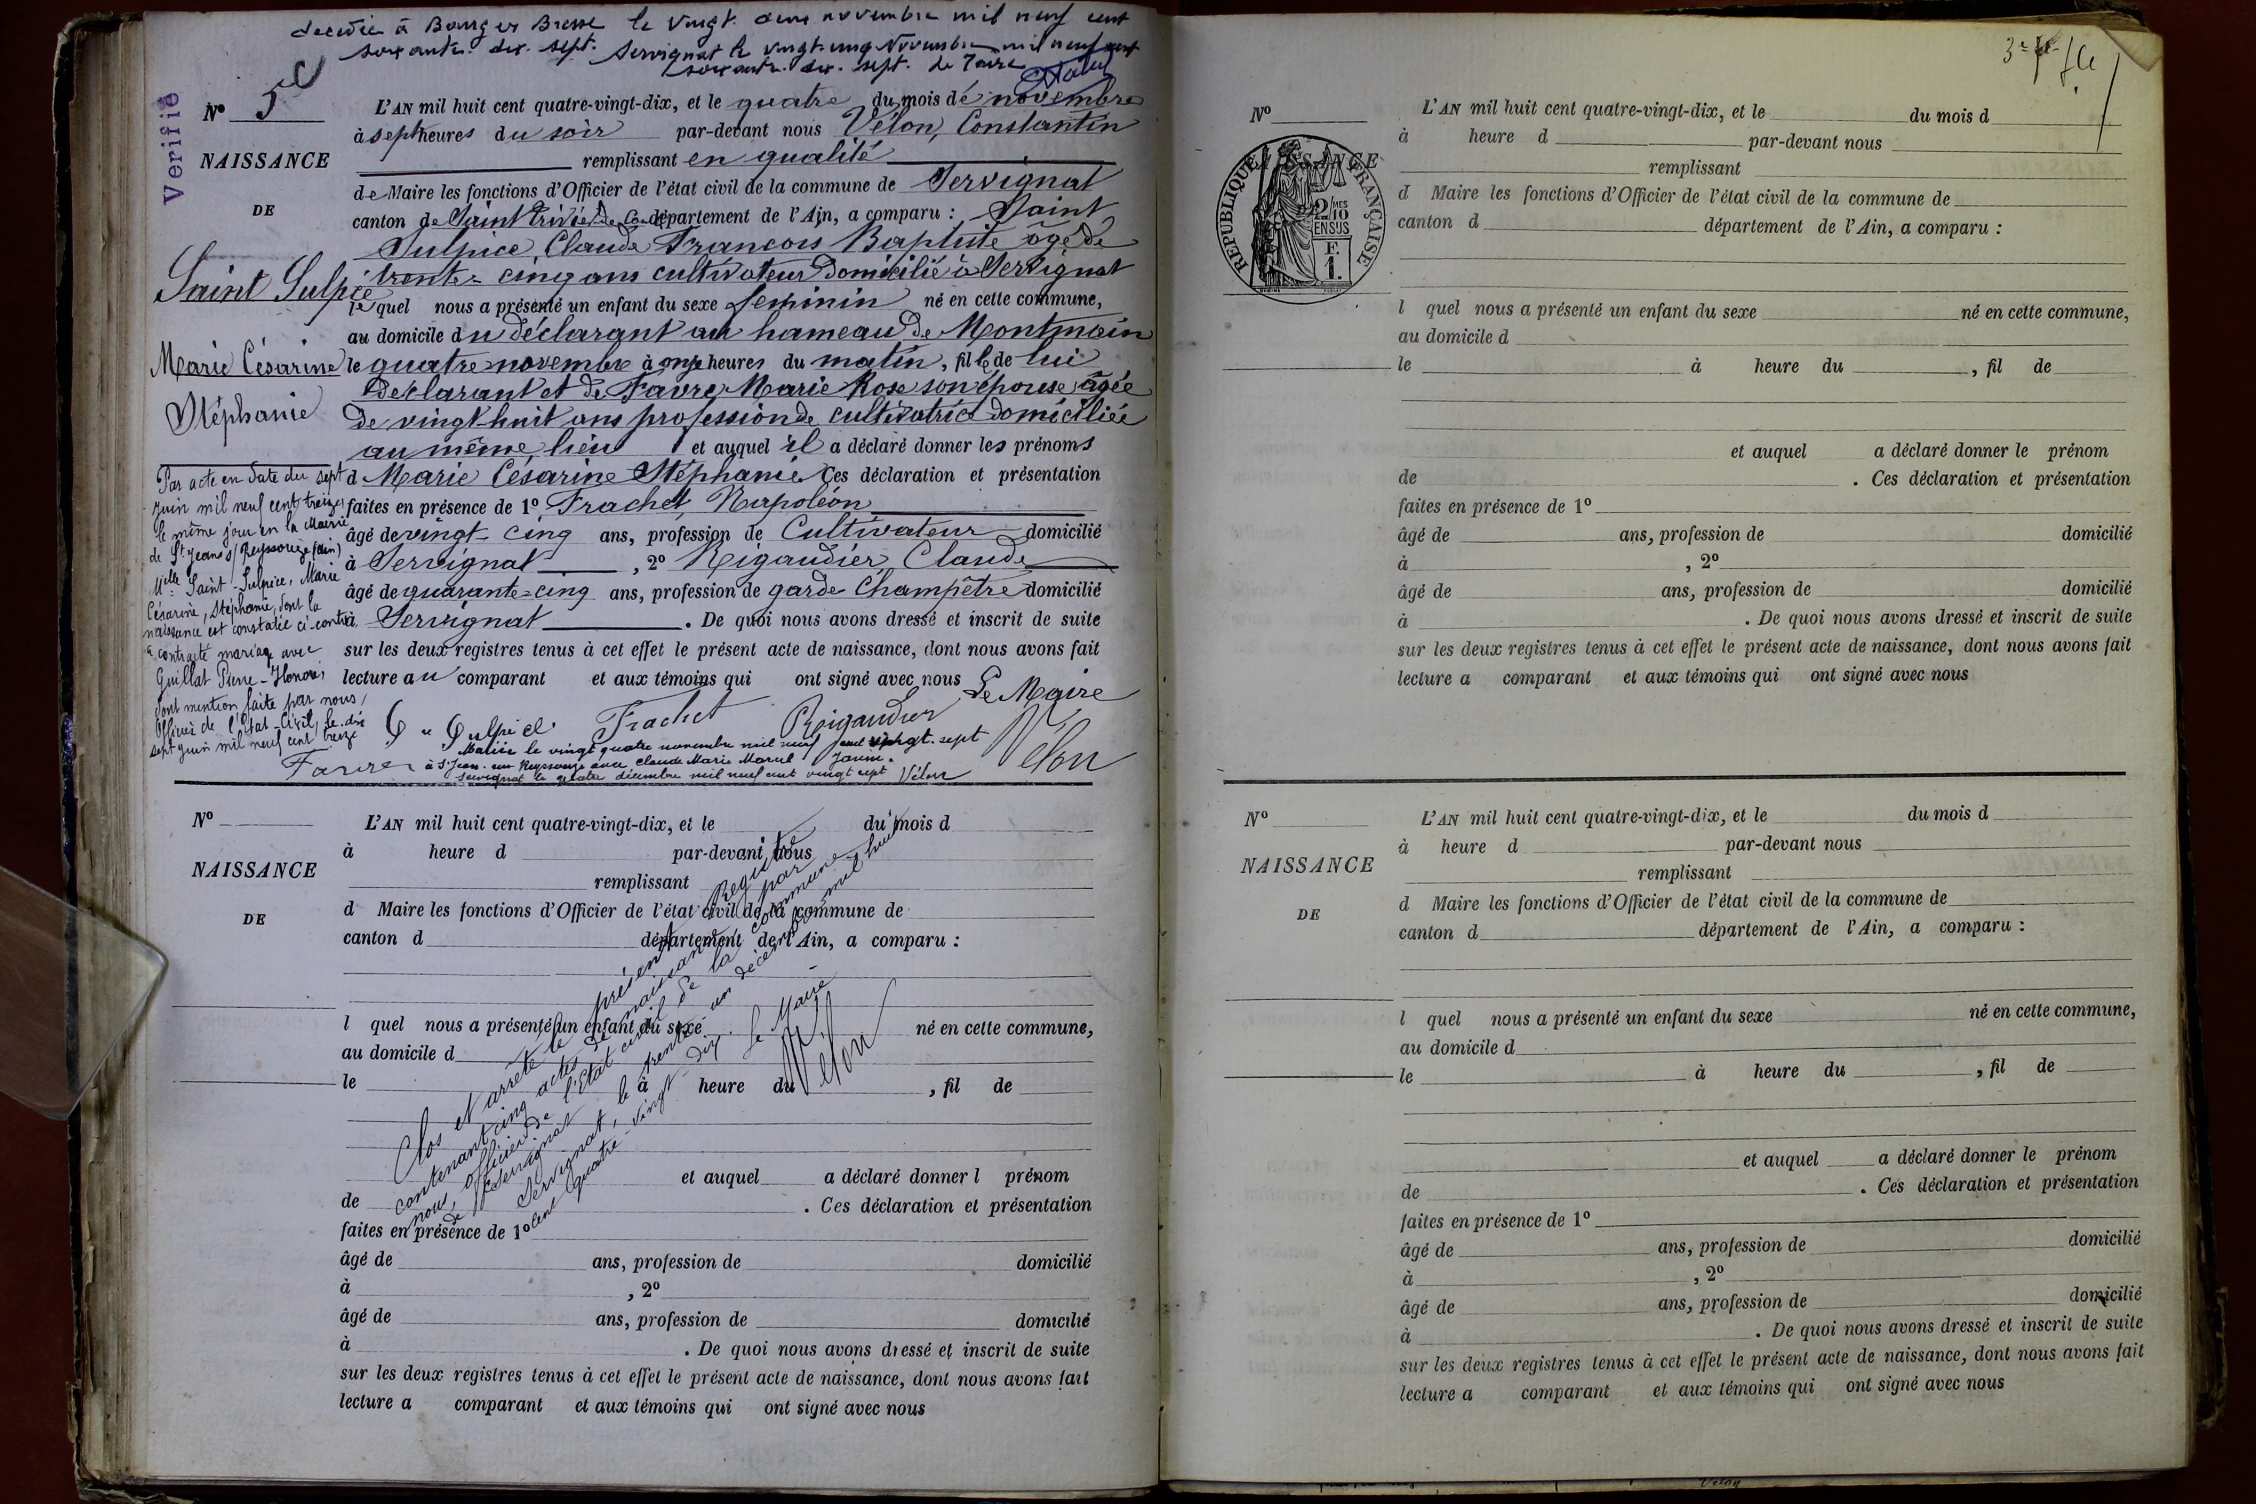 décédée à Bourg en Bresse le vingt deux novembre mil neuf cent
soixante-dix-sept. Servignat le vingt-cinq Novembre mil neuf cent
soixante-dix-sept. Le Maire
Verifié
N° 5
NAISSANCE
DE
Saint Sulpice
Marie Césarine
Stéphanie
L'AN mil huit cent quatre-vingt-dix, et le quatre du mois de novembre
à sept heures du soir par-devant nous Vélon, Constantin
remplissant en qualité
de Maire les fonctions d'Officier de l'état civil de la commune de Servignat
canton de Saint Trivier de Courtes département de l'Ain, a comparu : Saint
Sulpice, Claude François Baptiste âgé de
trente-cinq ans cultivateur domicilié à Servignat
lequel nous a présenté un enfant du sexe feminin né en cette commune,
au domicile du déclarant au hameau de Montmain
le quatre novembre à onze heures du matin, fille de lui
déclarant et de Favre, Marie Rose son épouse âgée
de vingt-huit ans profession de cultivatrice domiciliée
au même lieu et auquel il a déclaré donner les prénoms
d Marie Césarine Stéphanie Ces déclaration et présentation
faites en présence de 1° Frachet, Napoléon
âgé de vingt-cinq ans, profession de Cultivateur domicilié
à Servignat , 2° Rigaudier, Claude
âgé de quarante-cinq ans, profession de garde Champêtre domicilié
à Servignat . De quoi nous avons dressé et inscrit de suite
sur les deux registres tenus à cet effet le présent acte de naissance, dont nous avons fait
lecture au comparant et aux témoins qui ont signé avec nous Le Maire
Frachet Rigaudier Vélon
Par acte en date du sept
juin mil neuf cent treize,
le même jour en la Mairie
de St Jean s/ Reyssouze (Ain)
Mlle Saint-Sulpice, Marie
Césarine, Stéphanie, dont la
naissance est constatée ci-contre
a contracté mariage avec
Guillat Pierre-Honoré,
dont mention faite par nous,
Officier de l'Etat-Civil, le dix
sept juin mil neuf cent treize
Favre
Mariée le vingt quatre novembre mil neuf cent vingt-sept
à St Jean-sur Reyssouze avec Claude Marie Marcel Janin.
Servignat le quatre décembre mil neuf cent vingt sept Vélon
N°
NAISSANCE
DE
L'AN mil huit cent quatre-vingt-dix, et le du mois d
à heure d par-devant nous
remplissant
d Maire les fonctions d'Officier de l'état civil de la commune de
canton d département de l'Ain, a comparu :
l quel nous a présenté un enfant du sexe né en cette commune,
au domicile d
le à heure du , fil de
et auquel a déclaré donner l prénom
de . Ces déclaration et présentation
faites en présence de 1°
âgé de ans, profession de domicilié
à , 2°
âgé de ans, profession de domicilié
à . De quoi nous avons dressé et inscrit de suite
sur les deux registres tenus à cet effet le présent acte de naissance, dont nous avons fait
lecture a comparant et aux témoins qui ont signé avec nous
Clos et arrêté le présent Registre
contenant cinq actes de naissance par
nous, officier de l'Etat civil de la commune
de Servignat
Servignat, le trente un décembre mil huit
cent quatre-vingt-dix. Le Maire
Vélon
N°
RÉPUBLIQUE FRANÇAISE
2/10MES
EN SUS
F.
1.
NAISSANCE
L'AN mil huit cent quatre-vingt-dix, et le du mois d
à heure d par-devant nous
remplissant
d Maire les fonctions d'Officier de l'état civil de la commune de
canton d département de l'Ain, a comparu :
l quel nous a présenté un enfant du sexe né en cette commune,
au domicile d
le à heure du , fil de
et auquel a déclaré donner le prénom
de . Ces déclaration et présentation
faites en présence de 1°
âgé de ans, profession de domicilié
à , 2°
âgé de ans, profession de domicilié
à . De quoi nous avons dressé et inscrit de suite
sur les deux registres tenus à cet effet le présent acte de naissance, dont nous avons fait
lecture a comparant et aux témoins qui ont signé avec nous
N°
NAISSANCE
DE
L'AN mil huit cent quatre-vingt-dix, et le du mois d
à heure d par-devant nous
remplissant
d Maire les fonctions d'Officier de l'état civil de la commune de
canton d département de l'Ain, a comparu :
l quel nous a présenté un enfant du sexe né en cette commune,
au domicile d
le à heure du , fil de
et auquel a déclaré donner le prénom
de . Ces déclaration et présentation
faites en présence de 1°
âgé de ans, profession de domicilié
à , 2°
âgé de ans, profession de domicilié
à . De quoi nous avons dressé et inscrit de suite
sur les deux registres tenus à cet effet le présent acte de naissance, dont nous avons fait
lecture a comparant et aux témoins qui ont signé avec nous